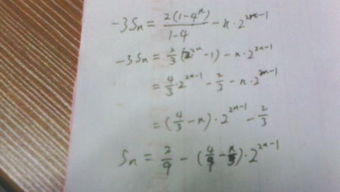 -3Sn = 2(1-4ⁿ)/(1-4) - n·2²ⁿ⁻¹
-3Sn = 2/3(2²ⁿ-1) - n·2²ⁿ⁻¹
= 4/3·2²ⁿ⁻¹ - 2/3 - n·2²ⁿ⁻¹
= (4/3-n)·2²ⁿ⁻¹ - 2/3
Sn = 2/9 - (4/9-n/3)·2²ⁿ⁻¹